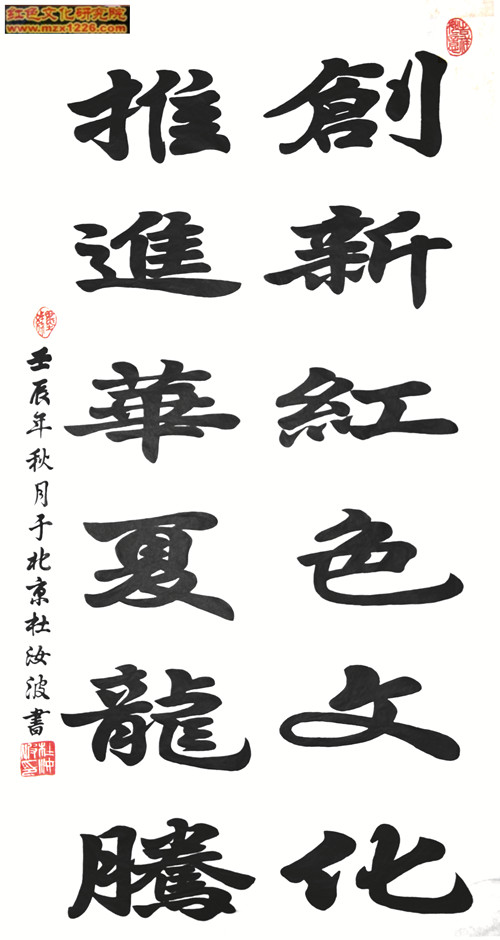 红色文化研究院
www.mzx1226.com
創新紅色文化
推進華夏龍騰
壬辰年秋月于北京杜汝波書